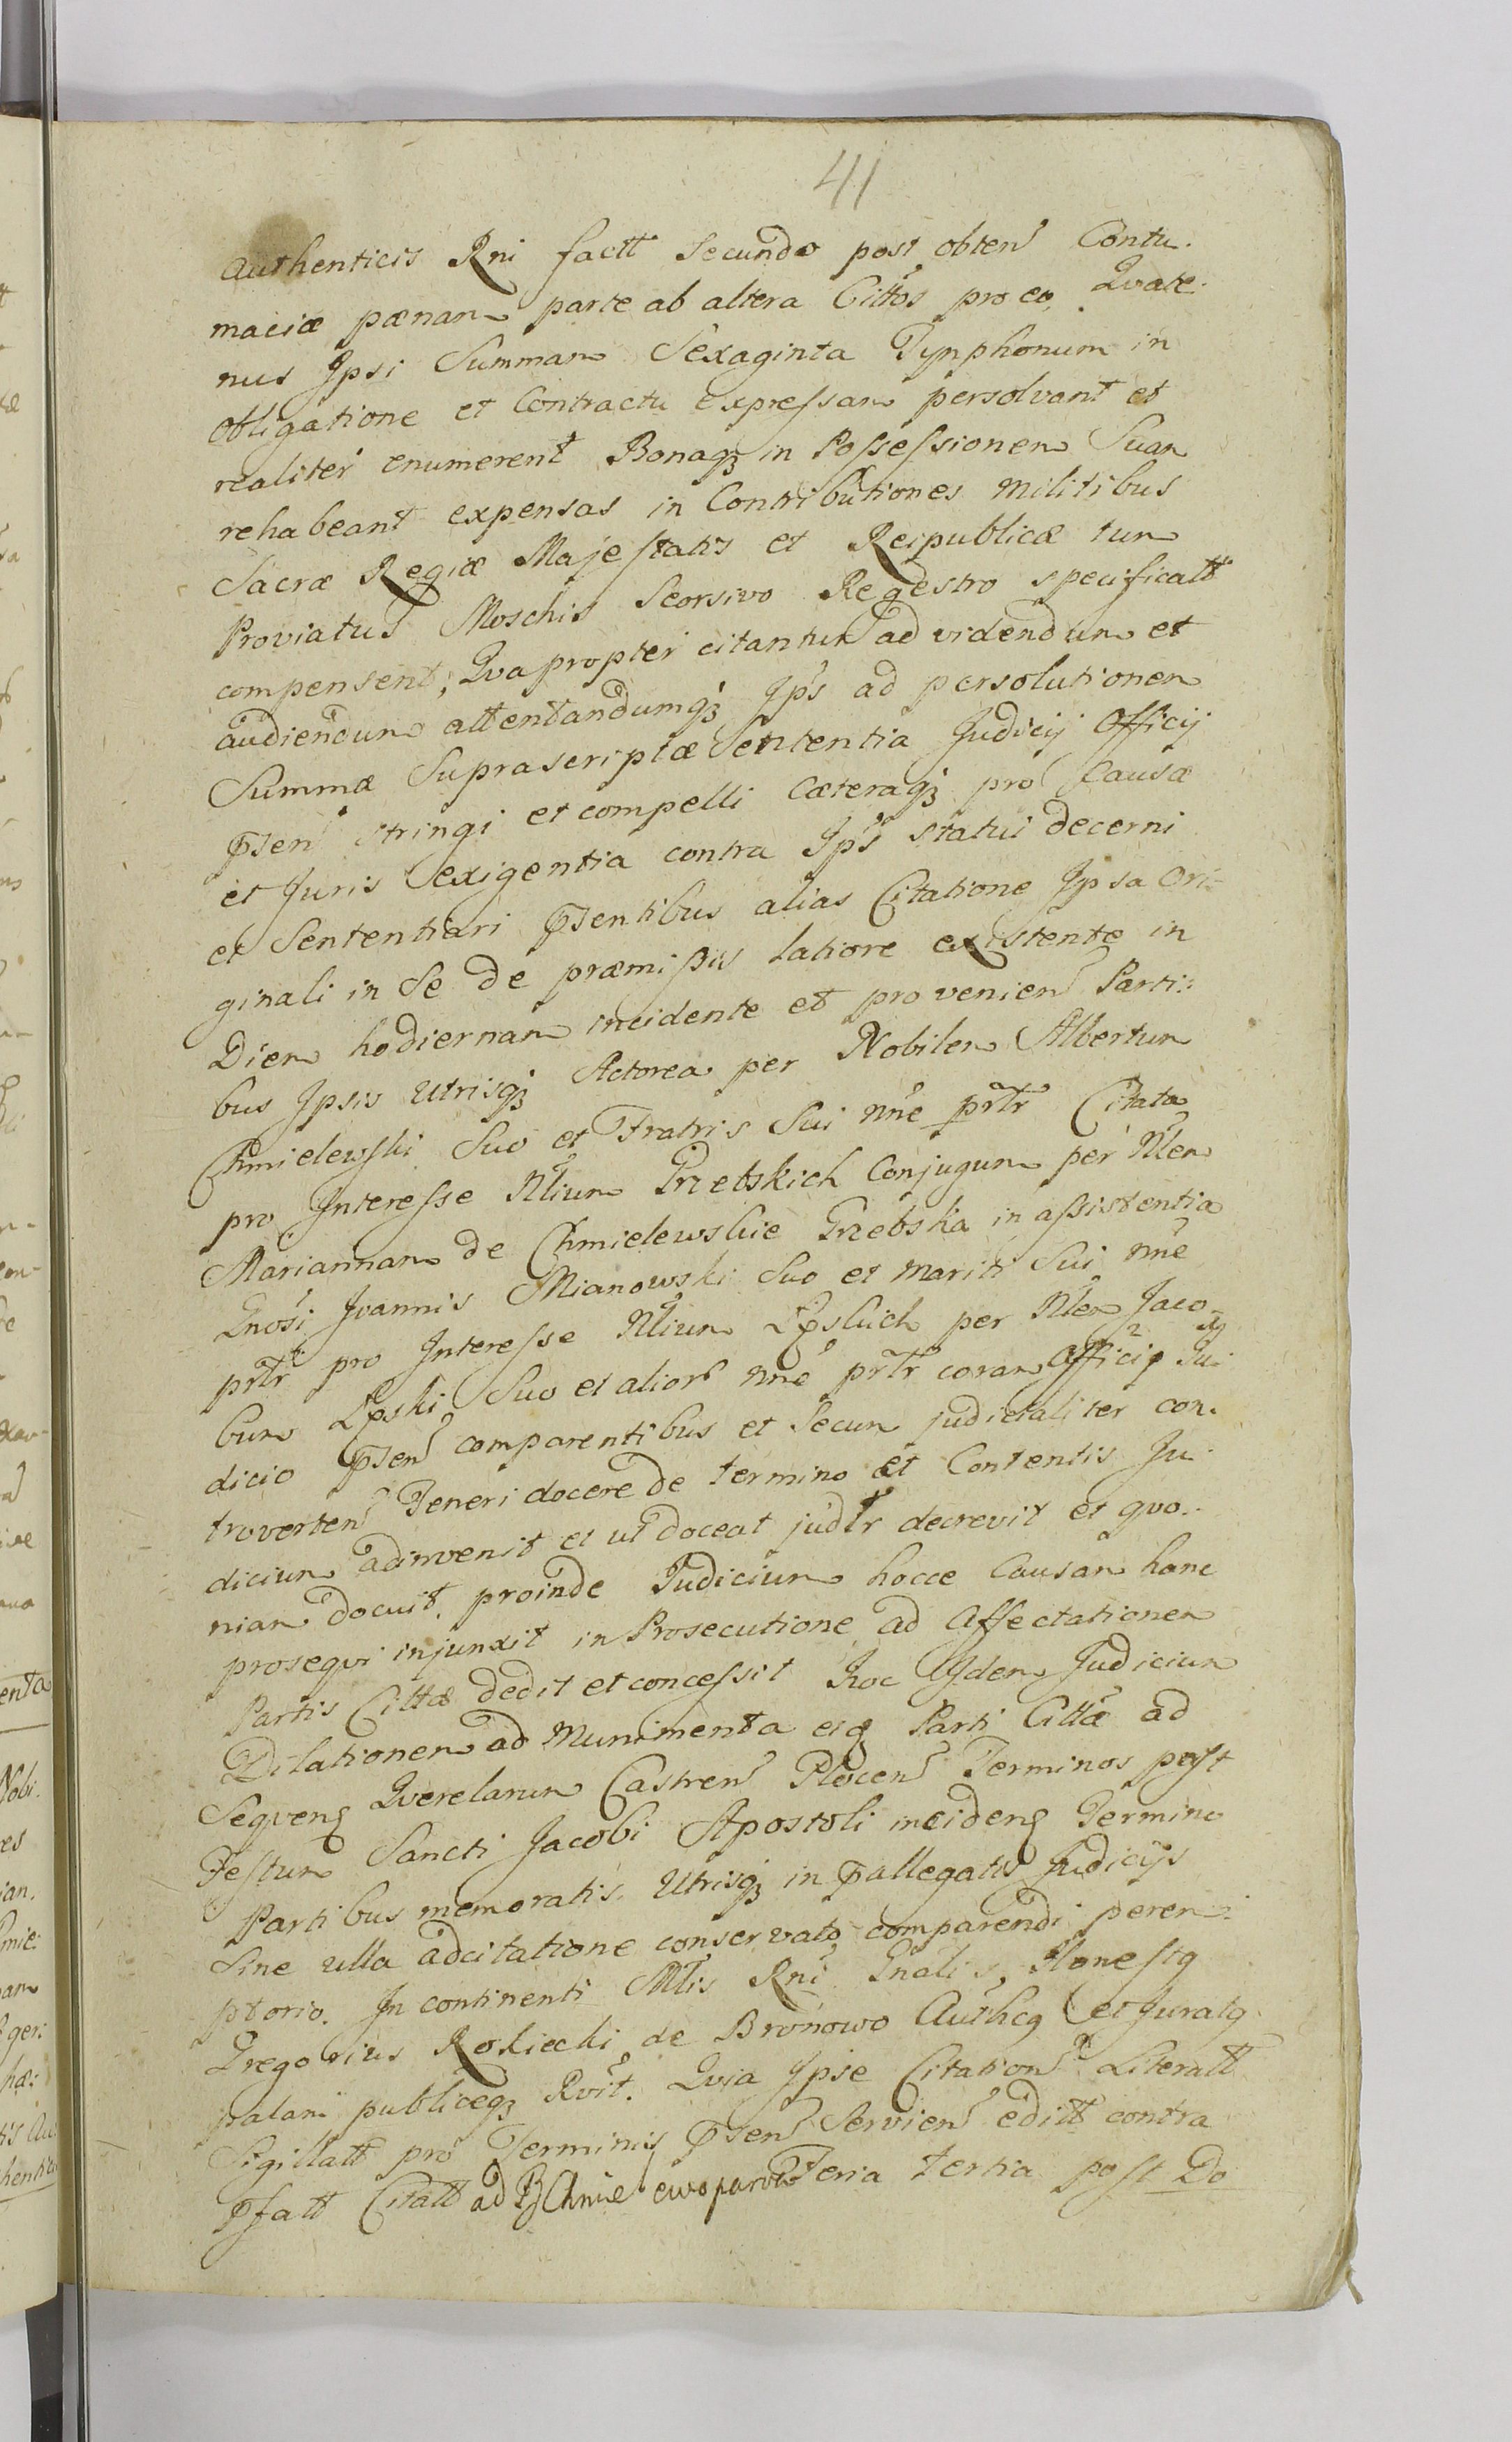 41
Authenticis Rni factt secundo post obten Contu-
maciæ pænam parte ab altera Cittos pro eo, Qvate-
nus Ipsi Summam Sexaginta Tynphonum in
Obligatione et Contractu expressam persolvant et
realiter enumerent Bonaqz in Possessionem Suam
rehabeant expensas in Contributiones militibus
Sacræ Regiæ Majestatis et Reipublicæ tum
Proviatus Moschis Seorsivo Regestro specificatt
compensent; Qvapropter citantur ad videndum et
audiendum attentandumqz Ips ad persolutionem
Summæ Suprascriptæ Sententia Judicij Officij
pnsen stringi et compelli Cæteraqz pro Causæ
et Juris exigentia contra Ips statui decerni
et Sententiari pnsentibus alias Citatione Ipsa Ori-
ginali in Se de præmissis latiore existente in
Diem hodiernam incidente et provenien Parti-
bus Ipsis Utrisqz Actorea per Nobilem Albertum
Chmielewski Suo et Fratris Sui nne prtr Citata
pro Interesse Nlium Grzebskich Conjugum per Nlem
Mariannam de Chmielewskie Grzebska in assistentia
Gnosi Joannis Mianowski Suo et mariti Sui nne
prtr pro Interesse Nlium Lpskich per Nlem Jaco-
bum Lpski Suo et alior nne prtr coram Officio Ju-
dicio pnsen comparentibus et Secum judicialiter con-
troverten Teneri docere de termino et Contentis Ju-
dicium adinvenit et ut doceat judtr decrevit et qvo-
niam docuit, proinde Judicium hocce Causam hanc
proseqvi injunxit in Prosecutione ad Affectationem
Partis Cittæ dedit et concessit hoc Idem Judicium
Dilationem ad Munimenta eidq Parti Cittæ ad
Seqven Qverelarum Castren Plocen Terminos post
Festum Sancti Jacobi Apostoli inciden Termino
Partibus memoratis Utrisqz in pallegatis Judicijs
Sine ulla adcitatione conservato comparendi perem-
ptorio. In continenti Mtis Rni Gnalis, Honestq
Gregorius Rokicki de Bronowo Authcq et Juratq
palam publiceqz Rvit. Qvia Ipse Citation Literatt
Sigillatt pro Terminis pnsen Servien editt contra
pfatt Citatt ad B Chmielewo parvo Feria tertia post Do